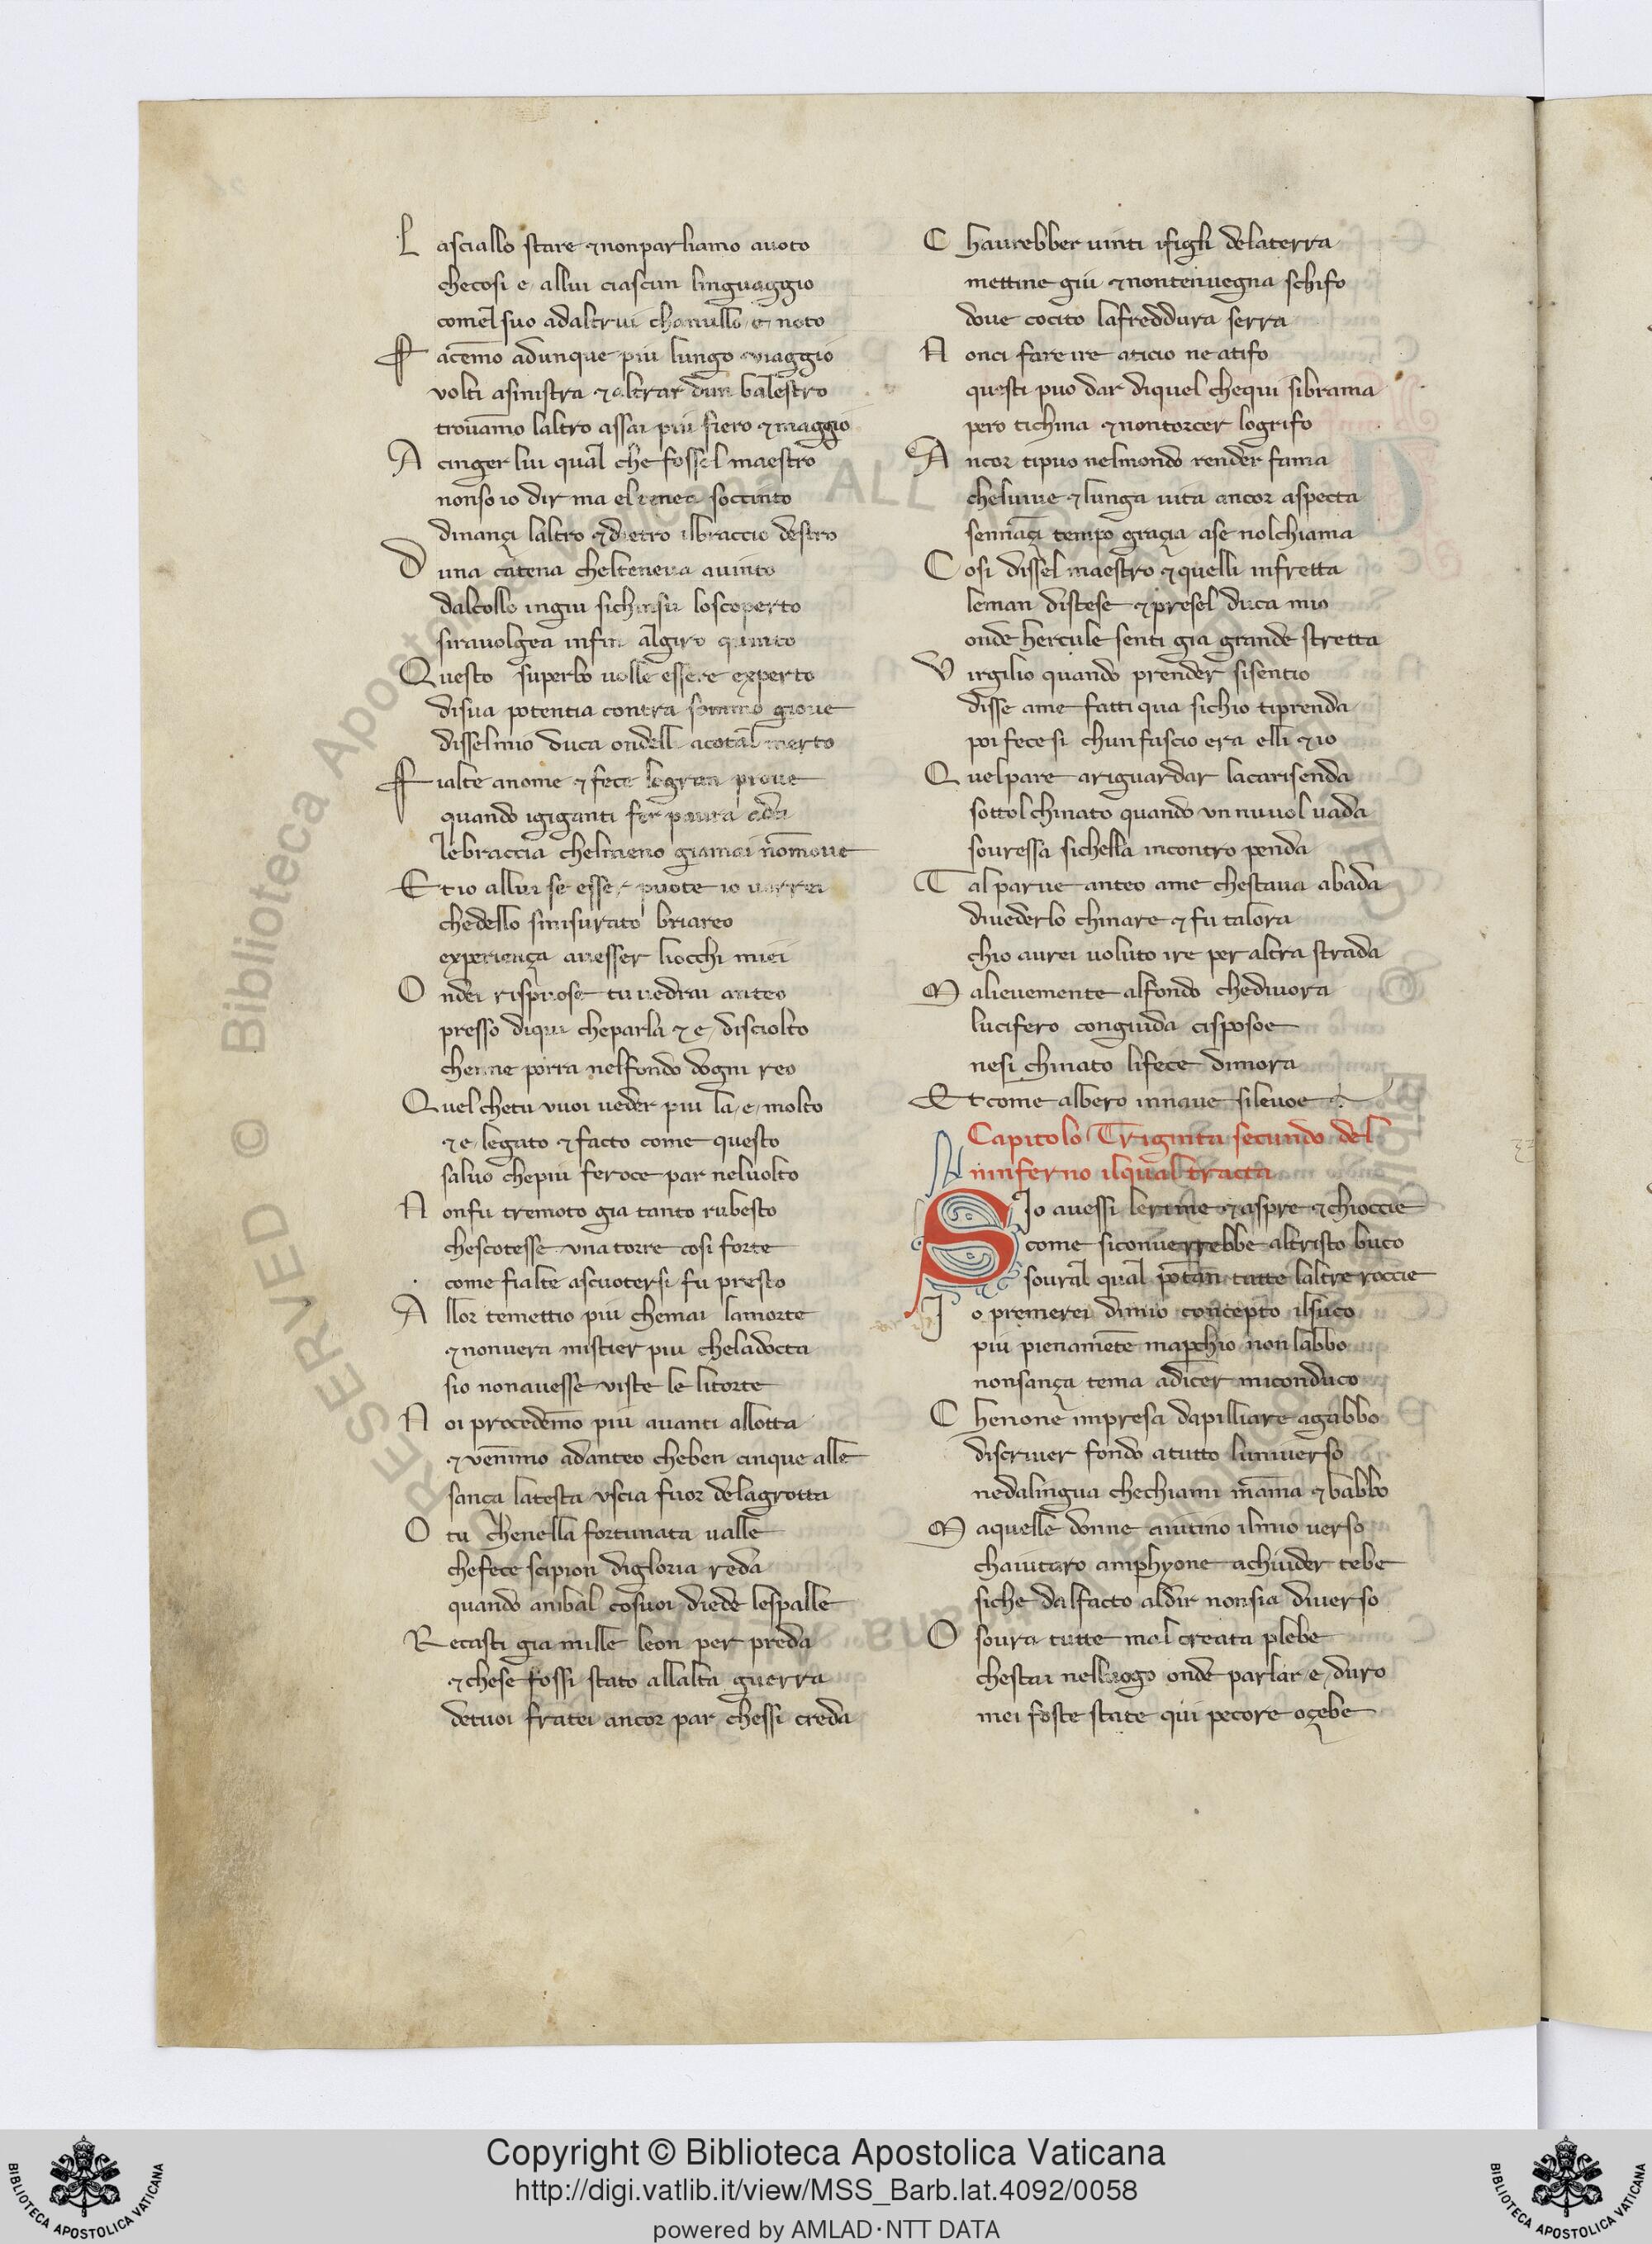 L asciallo stare ⁊ nonparliamo auoto
checosi e allui ciascun linguaggio
comel suo adaltrui chanullo e noto
F acemo adunque piu lungo uiaggio
volti asinistra ⁊ altrar dun balestro
trouamo laltro assai piu fiero ⁊ maggio
A cinger lui qual che fossel maestro
nonso io dir ma el tenea soccinto
dinançi laltro ⁊ dietro ilbraccio destro
D una catena chelteneua auinto
dalcollo ingiu sichensu loscoperto
sirauolgea infin algiro quinto
Questo superbo uolle essere experto
disua potentia contra sommo gioue
disselmio duca ondelli acotal merto
F ialte anome ⁊ fece legran proue
quando igiganti fer paura adei
lebraccia chelmeno giamai nōmoue
Et io allui se esser puote io uorrei
chedello smisurato briareo
experiença auesser liocchi miei
O ndei rispuose tu uedrai anteo
presso diqui cheparla ⁊ e disciolto
chenne porra nelfondo dogni reo
Quel chetu vuoi ueder piu la e molto
⁊ e legato ⁊ facto come questo
saluo chepiu feroce par neluolto
N onfu tremoto gia tanto rubesto
chescotesse una torre cosi forte
come fialte ascuotersi fu presto
A llor temettio piu chemai lamorte
⁊ nonuera mistier piu cheladocta
sio nonauesse viste le litorte
N oi procedemo piu auanti allotta
⁊ venimo adanteo cheben cinque alle
sança latesta vscia fuor delagrotta
O tu chenella fortunata ualle
chefece scipion digloria reda
quando anibal cosuoi diede lespalle
Recasti gia mille leon per preda
⁊ chese fossi stato allalta guerra
detuoi fratei ancor par chessi creda
C haurebber uinti ifigli delaterra
mettine giu ⁊ nontenuegna schifo
doue cocito lafreddura serra
N onci fare ire aticio ne atifo
questi puo dar diquel chequi sibrama
pero tichina ⁊ nontorcer logrifo
A ncor tipuo nelmondo render fama
cheluiue ⁊ lunga uita ancor aspecta
sennāçi tempo graçia ase nolchiama
C osi dissel maestro ⁊ quelli infretta
leman distese ⁊ presel duca mio
onde hercule senti gia grande stretta
V irgilio quando prender sisentio
disse ame fatti qua sichio tiprenda
poi fecesi chun fascio era elli ⁊ io
Q uelpare ariguardar lacarisenda
sottol chinato quando vn nuuol uada
souressa sichella incontro penda
T al parue anteo ame chestaua abada
diuederlo chinare ⁊ fu talora
chio aurei uoluto ire per altra strada
M alieuemente alfondo chediuora
lucifero conguida cisposoe
nesi chinato lifece dimora
Et come albero innaue sileuoe
Capitolo Triginta secundo del
ninferno ilqual tracta
S Io auessi lerime ⁊ aspre ⁊ chioccie
come siconuerrebbe altristo buco
soural qual pōtan tutte laltre roccie
I o premerei dimio concepto ilsuco
piu pienamēte maperchio non labbo
nonsança tema adicer miconduco
C henone impresa dapilliare agabbo
discriuer fondo atutto luniuerso
nedalingua chechiami māma ⁊ babbo
M aquelle donne aiutino ilmio uerso
chaiutaro amphyone achiuder tebe
siche dalfacto aldir nonsia diuerso
O soura tutte mal creata plebe
chestai nelluogo onde parlar e duro
mei foste state qui pecore oçebe
Copyright © Biblioteca Apostolica Vaticana
http://digi.vatlib.it/view/MSS_Barb.lat.4092/0058
powered by AMLAD·NTT DATA